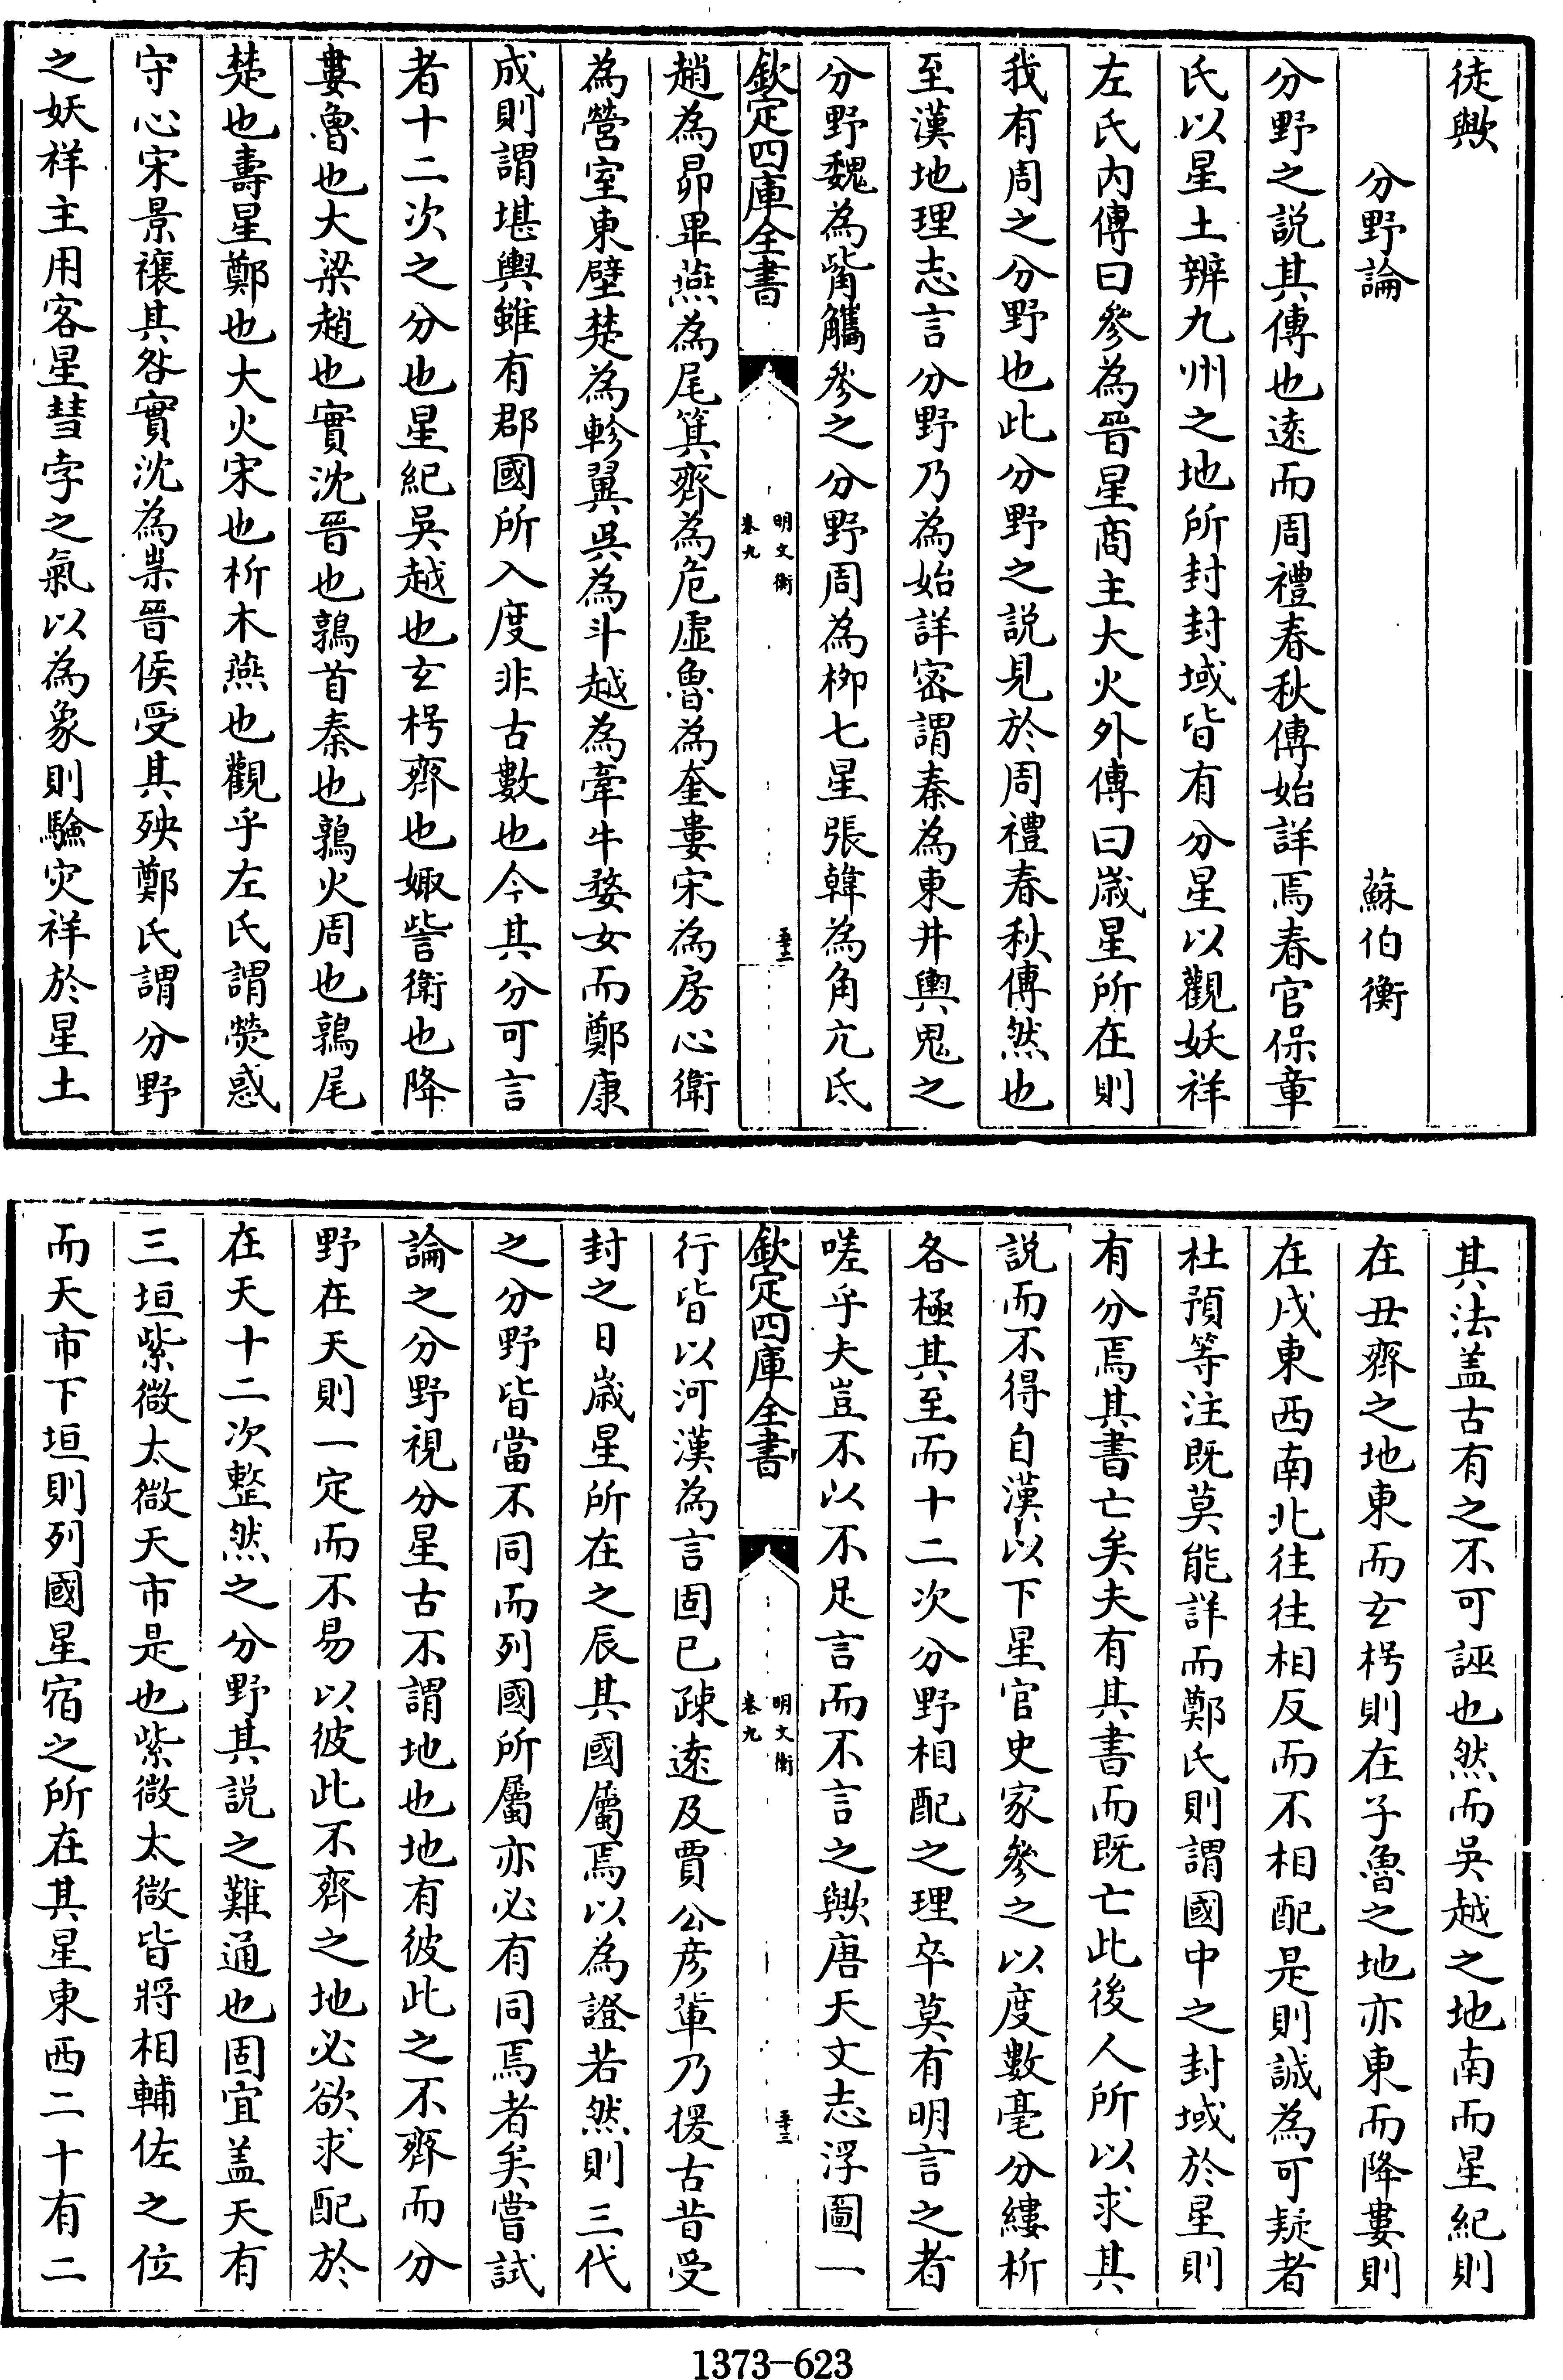 徒歟
分野論　　　　　　蘇伯衡
分野之說其傳也遠而周禮春秋傳始詳焉春官保章
氏以星土辨九州之地所封封域皆有分星以觀妖祥
左氏內傳曰參為晉星商主大火外傳曰歲星所在則
我有周之分野也此分野之說見於周禮春秋傳然也
至漢地理志言分野乃為始詳密謂秦為東井輿鬼之
分野魏為觜觿參之分野周為柳七星張韓為角亢氐
欽定四庫全書
明文衡
卷九
五十二
趙為昴畢燕為尾箕齊為危虛魯為奎婁宋為房心衛
為營室東壁楚為軫翼吳為斗越為牽牛婺女而鄭康
成則謂堪輿雖有郡國所入度非古數也今其分可言
者十二次之分也星紀吳越也玄枵齊也娵訾衛也降
婁魯也大梁趙也實沈晉也鶉首秦也鶉火周也鶉尾
楚也壽星鄭也大火宋也析木燕也觀乎左氏謂熒惑
守心宋景禳其咎實沈為祟晉侯受其殃鄭氏謂分野
之妖祥主用客星彗孛之氣以為象則驗灾祥於星土
其法盖古有之不可誣也然而吳越之地南而星紀則
在丑齊之地東而玄枵則在子魯之地亦東而降婁則
在戌東西南北往往相反而不相配是則誠為可疑者
杜預等注既莫能詳而鄭氏則謂國中之封域於星則
有分焉其書亡矣夫有其書而既亡此後人所以求其
說而不得自漢以下星官史家參之以度數毫分縷析
各極其至而十二次分野相配之理卒莫有明言之者
嗟乎夫豈不以不足言而不言之歟唐天文志浮圖一
欽定四庫全書
明文衡
卷九
五十三
行皆以河漢為言固已疎遠及賈公彥輩乃援古昔受
封之日歲星所在之辰其國屬焉以為證若然則三代
之分野皆當不同而列國所屬亦必有同焉者矣嘗試
論之分野視分星古不謂地也地有彼此之不齊而分
野在天則一定而不易以彼此不齊之地必欲求配於
在天十二次整然之分野其說之難通也固宜盖天有
三垣紫微太微天市是也紫微太微皆將相輔佐之位
而天市下垣則列國星宿之所在其星東西二十有二
1373-623